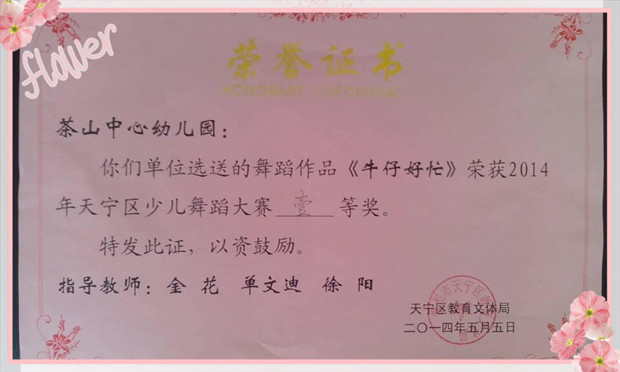 flower
荣誉证书
HONORARY CREDENTIAL
茶山中心幼儿园：
你们单位选送的舞蹈作品《牛仔好忙》荣获2014
年天宁区少儿舞蹈大赛 壹 等奖。
特发此证，以资鼓励。
指导教师：金 花 单文迪 徐 阳
天宁区教育文体局
二〇一四年五月五日